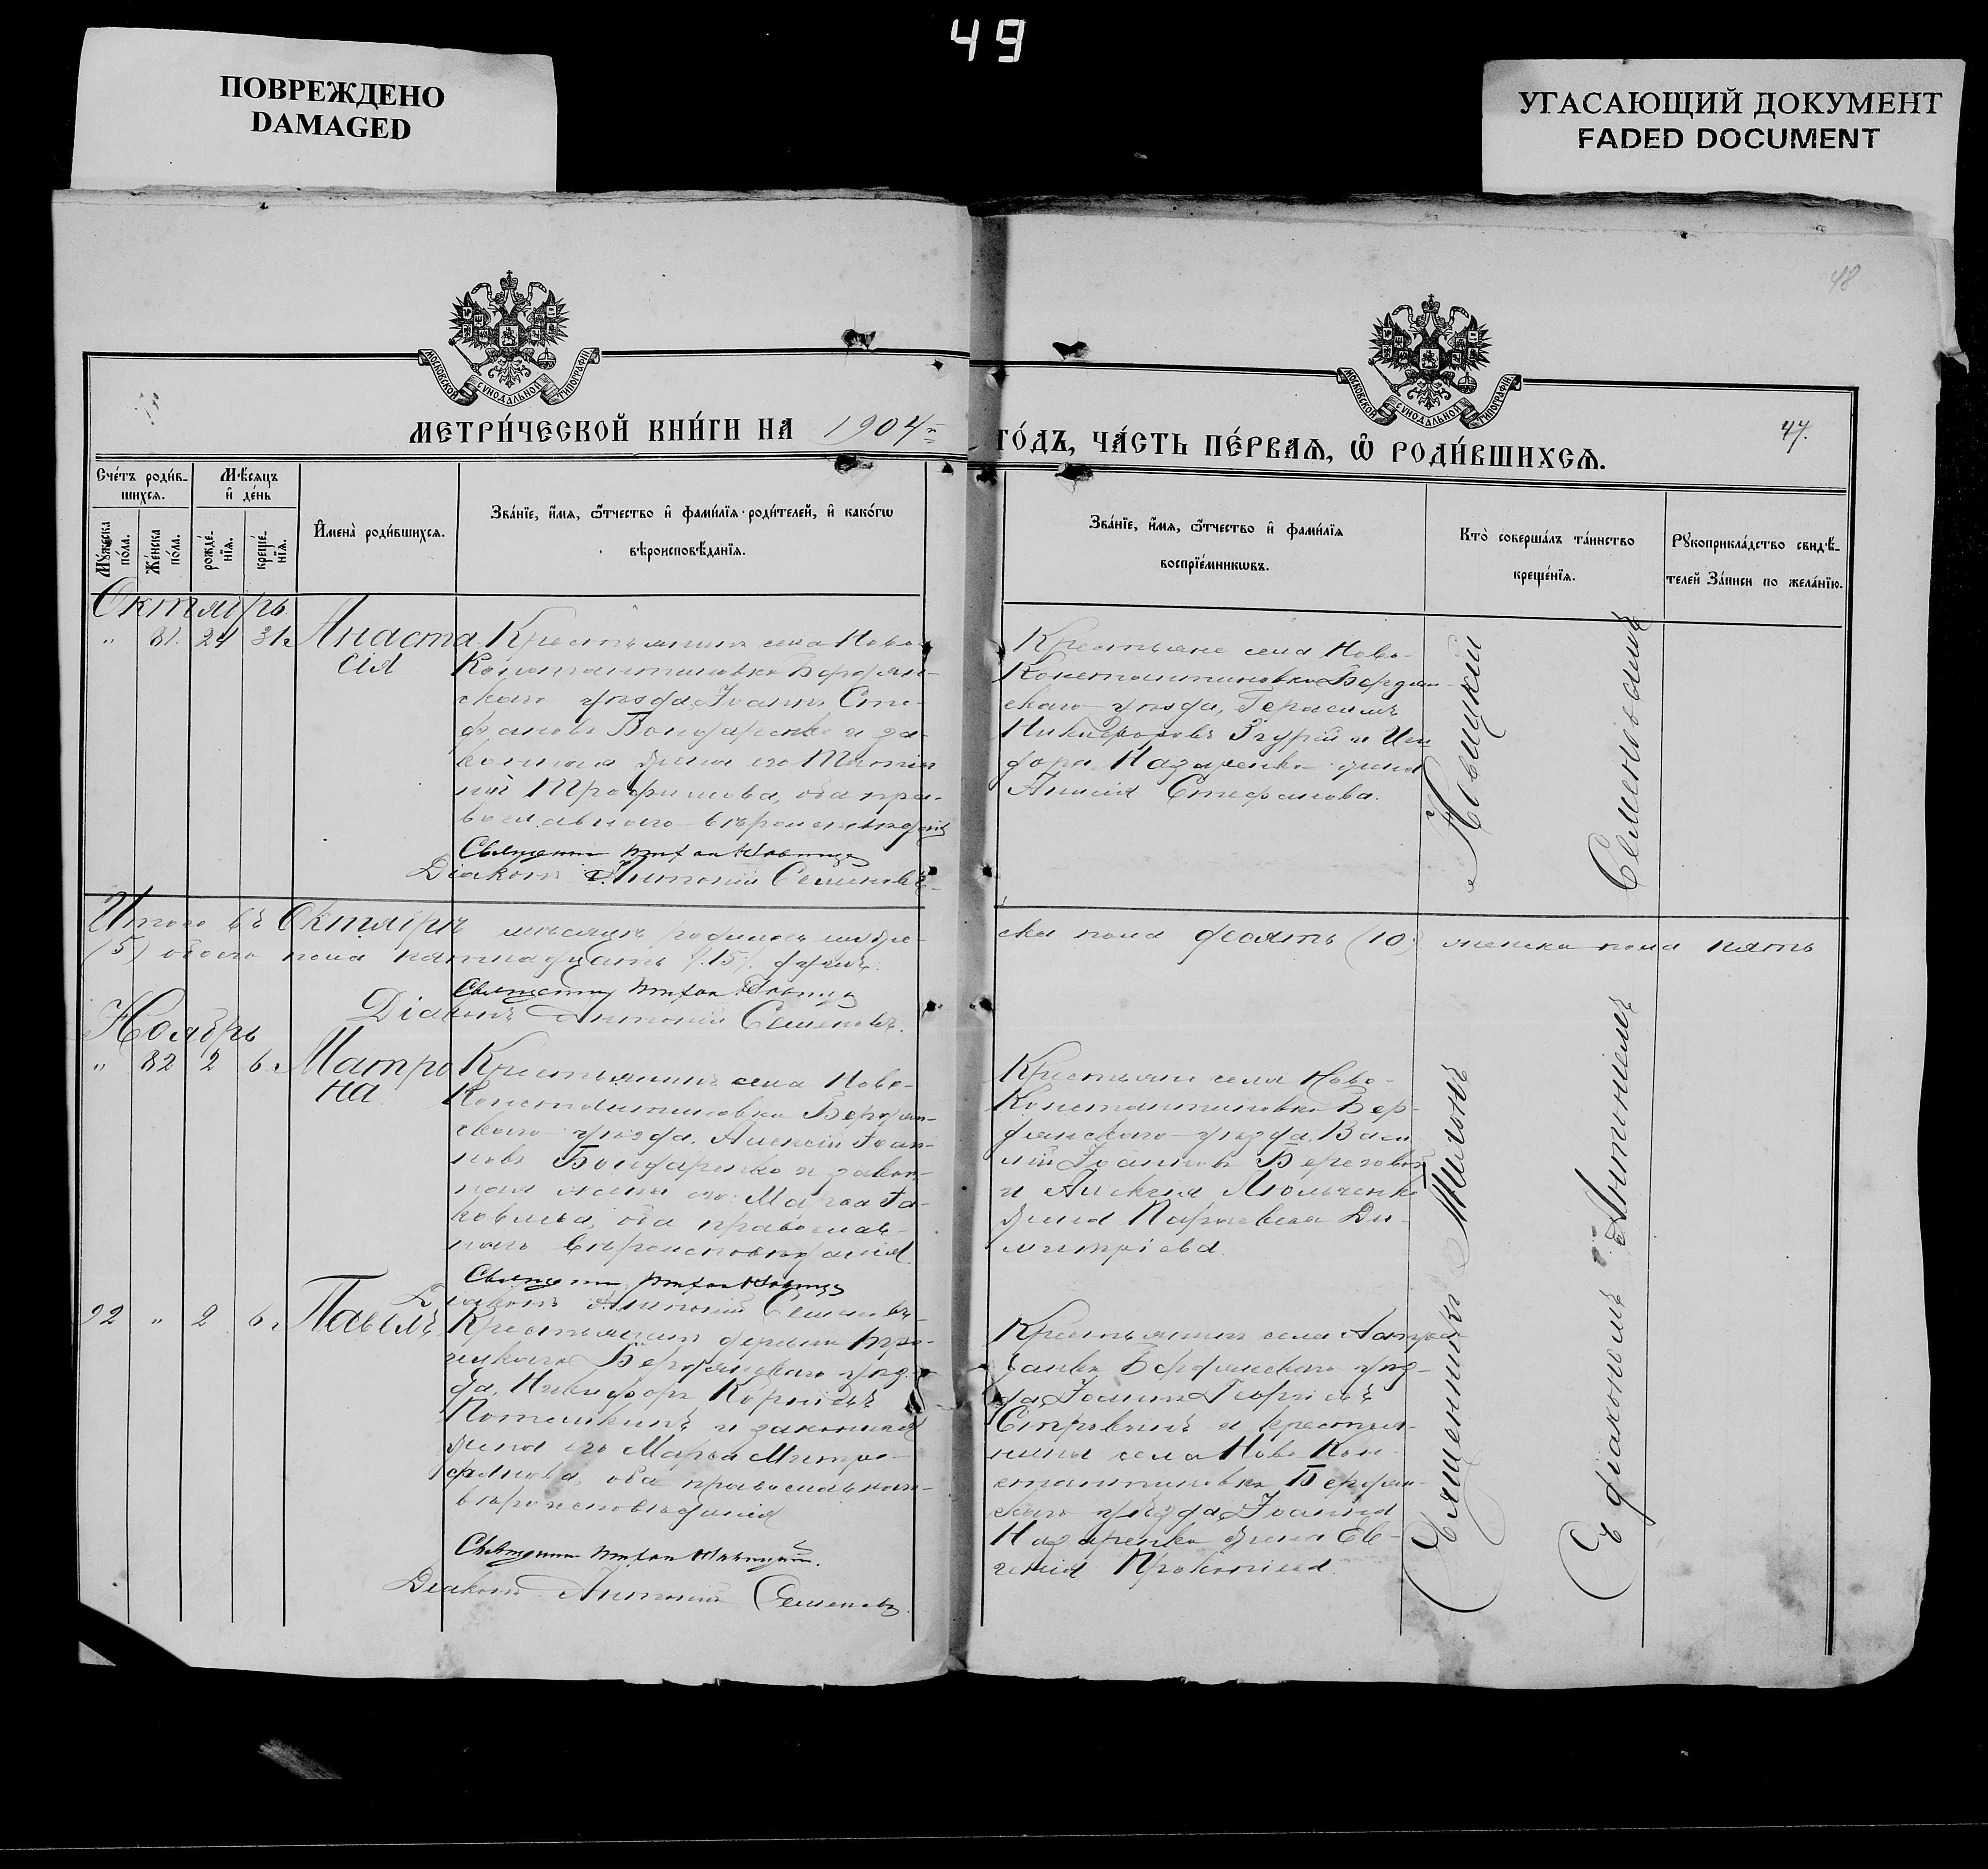 49
ПОВРЕЖДЕНО
DAMAGED
УГАСАЮЩИЙ ДОКУМЕНТ
FADED DOCUMENT
48
МОСКОВСКОЙ СУНОДАЛЬНОЙ ТИПОГРАФІИ
МОСКОВСКОЙ СУНОДАЛЬНОЙ ТИПОГРАФІИ
МЕТРИ́ЧЕСКОЙ КНИ́ГИ НА 1904
ГО́ДЪ, ЧА́СТЬ ПЕ́РВАѦ, Ѽ РОДИ́ВШИХСѦ.
47.
Сче́тъ роди́в-
шихсѧ.
Мѣ́сѧцъ
и҆ де́нь
Мꙋ́жеска
по́ла.
Же́нска
по́ла.
рожде́-
нїѧ.
креще́-
нїѧ.
И҆мена̀ роди́вшихсѧ.
Зва́нїе, и҆́мѧ, ѻ҆́тчество и҆ фами́лїѧ роди́телей, и҆ како́гѡ
вѣроисповѣ́данїѧ.
Зва́нїе, и҆́мѧ, ѻ҆́тчество и҆ фами́лїѧ
воспрїе́мникѡвъ.
Кто̀ соверша́лъ та́инство
креще́нїѧ.
Рꙋкоприкла́дство свидѣ́-
телей За́писи по жела́нїю.
Октябрь
" 81. 24 31. Анаста
сія
Крестьянинъ села Ново-
Константиновки Бердян-
скаго уѣзда Іоаннъ Сте-
фановъ Бондаренко и за-
конная жена его
Трофимова, оба пра-
вославнаго вѣроисповѣданія
Діаконъ Антоній Семеновъ
Крестьяне села Ново-
Константиновки Бердян-
скаго уѣзда, Герасимъ
Никифоровъ и Иси-
дора Назаренко жена
Стефанова.
Новицкій
Семеновымъ
Итого въ Октябрѣ мѣсяцѣ родилось муже-
ска пола десять (10) женска пола пять
(5) обоего пола пятнадцать (15) душъ.
Діаконъ Антоній Семеновъ.
Ноябрь
" 82 2 6. Матро
на
Крестьянинъ села Ново-
Константиновки Бердян-
скаго уѣзда, Алексій Іоан-
новъ Бондаренко и закон-
ная жена его Марѳа Іа-
ковлева, оба православ-
наго вѣроисповѣданія
Діаконъ Антоній Семеновъ
Крестьяне села Ново-
Константиновки Бер-
дянскаго уѣзда, Васи-
лій Іоанновъ Береговой
и Алексѣя Люльченко
жена Параскева Ди-
митріева.
92 " 2 6. Павелъ
Крестьянинъ деревни Тро-
ицкаго Бердянскаго уѣз-
да, Никифоръ Корніевъ
Потешкинъ и законная
жена его Марѳа Митро-
фанова, оба православнаго
вѣроисповѣданія
Діаконъ Антоній Семеновъ.
Крестьянинъ села
Бердянскаго уѣз-
да Іоаннъ Георгіевъ
и крестья-
нина села Ново Кон-
стантиновки Бердян-
скаго уѣзда Іоанна
Назаренко жена Ев-
генія Прокопіева.
Священникъ
Съ діакономъ Антоніемъ